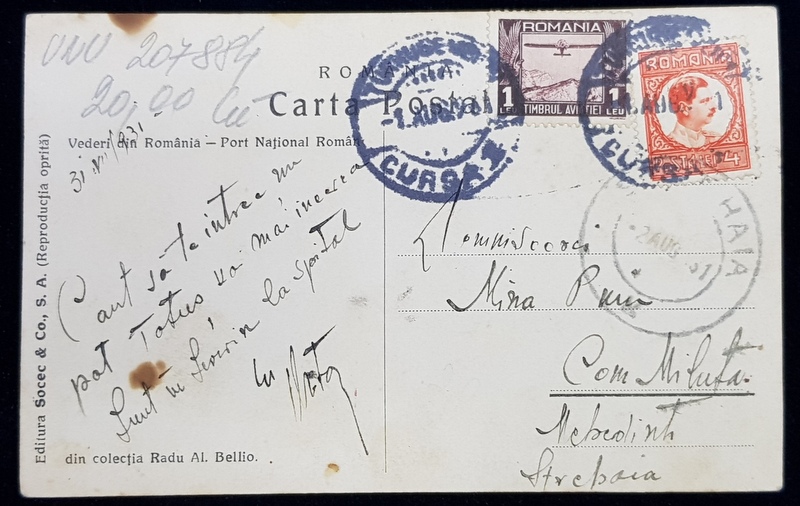 UNU 207884
20,00 lei
ROMÂNIA
Carta Postală
Vederi din România — Port Național Român
31 VII 1931
Caut să te întrec nu
pot Totuș voi mai încerca
Sunt în Severin la spital
Editura Socec & Co., S. A. (Reproducția oprită)
din colecția Radu Al. Bellio.
ROMANIA
1 LEU
TIMBRUL AVIAȚIEI
1 LEU
ROMANIA
POSTA LEI 4
-1.AUG.931
CURSA 2
1 AUG
CURSA
HAIA
2 AUG 931
Domnișoarei
Mina Pun
Com Miluta
Mehedinti
Strehaia